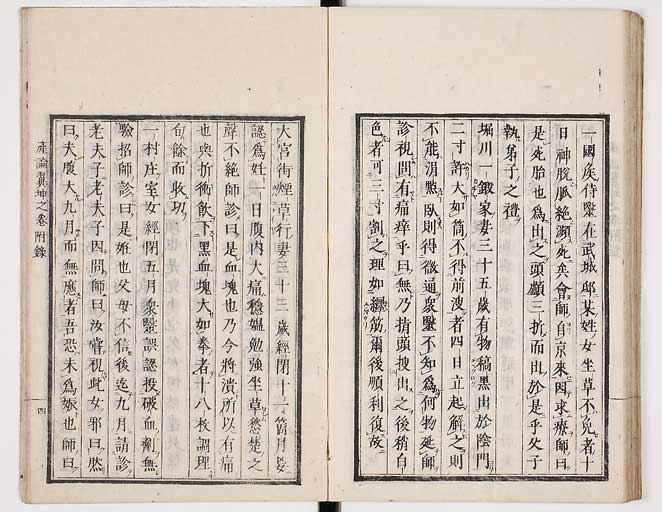 一國矦侍毉在武城邸某姓女坐草不免者十
日神脫脈絶瀕死矣會師自京來因求療師曰
是死胎也爲出之頭顱三折而出於是乎父子
執弟子之禮
堀川一鍛家妻三十五歲有物稿黑出於陰門
二寸許大如筒不得前溲者四日立起解之則
不能涓點臥則得微通衆毉不知爲何物延師
診視問有痛痒乎曰無乃揹頭搜出之後稍白
色者可三寸割之理如纒筋爾後順利復故
大宮街煙草行妻三十三歲經閉十一箇月妄
認爲姙一日腹内大痛穩媼勉強坐草愁楚之
聲不絶師診曰是血塊也乃今將潰所以有痛
也與折衝飲下黑血塊大如拳者十八枚調理
旬餘而收功
一村庄室女經閉五月衆毉誤認投破血劑無
驗招師診曰是姙也父母不信後迄九月請診
老夫子老夫子因問師曰汝嘗視此女邪曰然
曰夫腹大九月而無應者吾恐未爲娠也師曰
產論翼坤之卷附錄
四